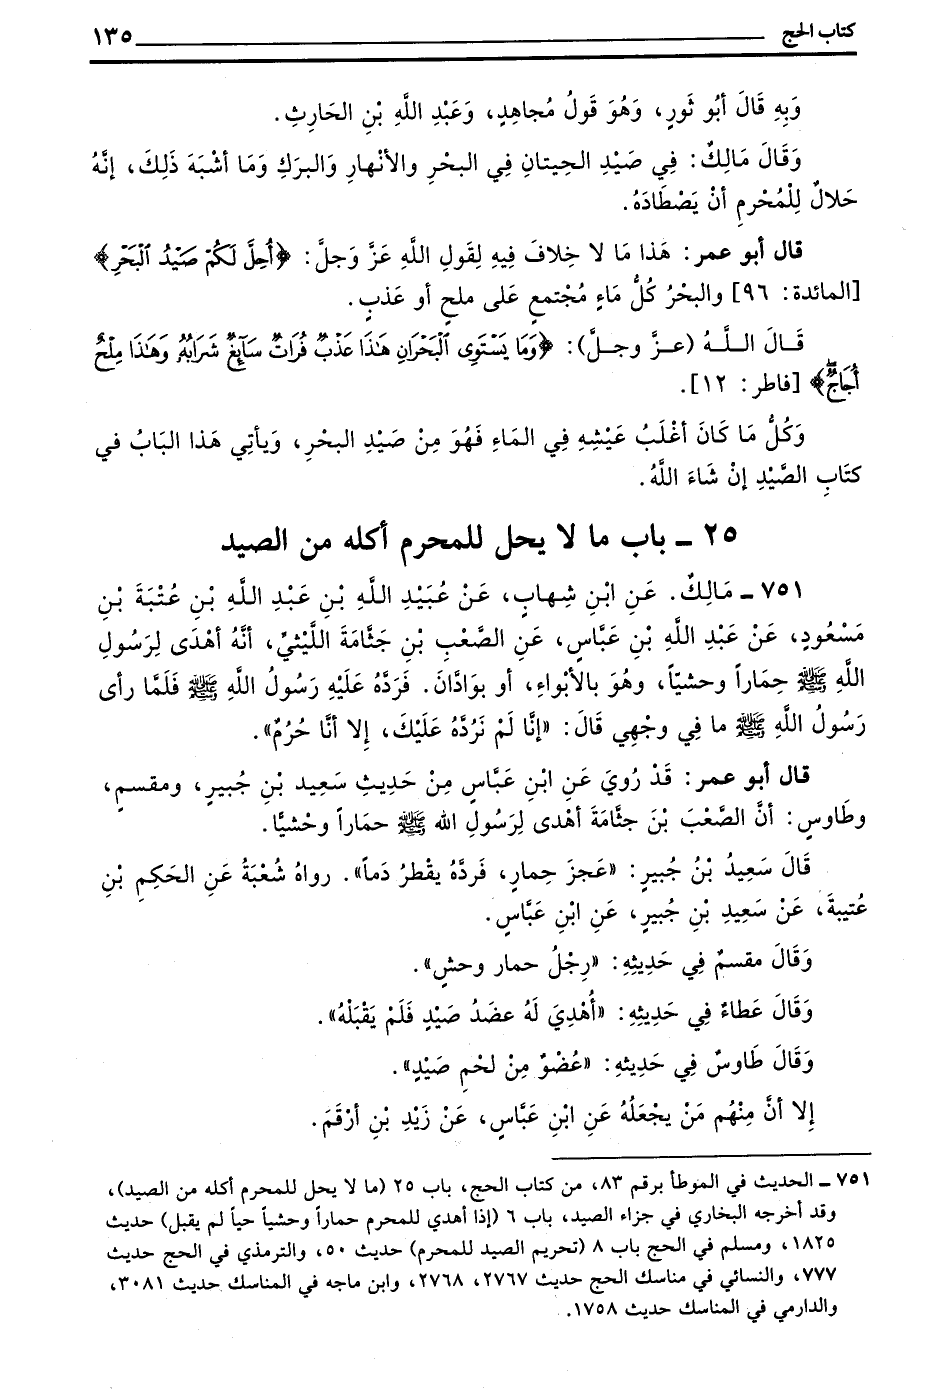 كتاب الحج ١٣٥
وَبِهِ قَالَ أبُو ثَورٍ، وَهُوَ قَولُ مُجاهِدٍ، وَعَبْدِ اللَّهِ بْنِ الحَارِثِ.
وَقَالَ مَالِكٌ: فِي صَيْدِ الحِيتانِ فِي البَحْرِ والأنْهارِ وَالبرَكِ وَمَا أشْبَهَ ذَلِكَ، إنَّهُ
حَلالٌ لِلْمُحْرمِ أنْ يَصْطَادَهُ.
قال أبو عمر: هَذَا مَا لا خِلافَ فِيهِ لِقَولِ اللَّهِ عَزَّ وَجلَّ: ﴿أُحِلَّ لَكُمْ صَيْدُ ٱلْبَحْرِ﴾
[المائدة: ٩٦] والبحْرُ كُلُّ مَاءٍ مُجْتمعٍ عَلى ملحٍ أو عَذبٍ.
قَـالَ الـلَّـهُ (عـزَّ وجـلَّ): ﴿وَمَا يَسْتَوِى ٱلْبَحْرَانِ هَٰذَا عَذْبٌ فُرَاتٌ سَآئِغٌ شَرَابُهُۥ وَهَٰذَا مِلْحٌ
أُجَاجٌ﴾ [فاطر: ١٢].
وَكُلُّ مَا كَانَ أغْلَبُ عَيْشِهِ فِي المَاءِ فَهُوَ مِنْ صَيْدِ البحْرِ، وَيأتِي هَذا البَابُ في
كتَابِ الصَّيْدِ إنْ شَاءَ اللَّهُ.
٢٥ ـ باب ما لا يحل للمحرم أكله من الصيد
٧٥١ ـ مَالِكٌ. عَنِ ابْنِ شِهابٍ، عَنْ عُبَيْدِ اللَّهِ بْنِ عَبْدِ اللَّهِ بْنِ عُتْبَةَ بْنِ
مَسْعُودٍ، عَنْ عَبْدِ اللَّهِ بْنِ عَبَّاسٍ، عَنِ الصَّعْبِ بْنِ جَثَّامَةَ اللَّيْثيِّ، أنَّهُ أهْدَى لِرَسُولِ
اللَّهِ ﷺ حِمَاراً وَحشيّاً، وهُوَ بالأبْواءِ، أو بوَادَّانَ. فَرَدَّهُ عَلَيْهِ رَسُولُ اللَّهِ ﷺ فَلَمَّا رأى
رَسُولُ اللَّهِ ﷺ ما فِي وجْهِي قَالَ: «إنَّا لَمْ نَرُدَّهُ عَلَيْكَ، إلا أنَّا حُرُمٌ».
قال أبو عمر: قَدْ رُويَ عَنِ ابْنِ عَبَّاسٍ مِنْ حَديثِ سَعِيد بْنِ جُبيرٍ، ومقسمٍ،
وطَاوسٍ: أنَّ الصَّعْبَ بْنَ جثَّامَةَ أهْدى لِرَسُولِ الله ﷺ حمَاراً وحْشيَّا.
قَالَ سَعِيدُ بْنُ جُبيرٍ: «عَجزَ حِمارٍ، فَردَّهُ يقْطرُ دَماً». رواهُ شُعْبَةُ عَنِ الحَكِمِ بْنِ
عُتيبةَ، عَنْ سَعِيدِ بْنِ جُبيرٍ، عَنِ ابْنِ عَبَّاسٍ.
وَقَالَ مقسمٌ فِي حَدِيثِهِ: «رِجْلُ حمار وحشٍ».
وَقَالَ عَطاءٌ فِي حَدِيثِهِ: «أُهْدِيَ لَهُ عضَدُ صَيْدٍ فَلَمْ يَقْبَلْهُ».
وَقَالَ طَاوسٌ فِي حَدِيثهِ: «عُضْوٌ مِنْ لحْمِ صَيْدٍ».
إلا أنَّ مِنْهُم مَنْ يجْعَلُهُ عَنِ ابْنِ عَبَّاسٍ، عَنْ زَيْدِ بْنِ أرْقَمَ.
٧٥١ ـ الحديث في الموطأ برقم ٨٣، من كتاب الحج، باب ٢٥ (ما لا يحل للمحرم أكله من الصيد)،
وقد أخرجه البخاري في جزاء الصيد، باب ٦ (إذا أهدي للمحرم حماراً وحشياً حياً لم يقبل) حديث
١٨٢٥، ومسلم في الحج باب ٨ (تحريم الصيد للمحرم) حديث ٥٠، والترمذي في الحج حديث
٧٧٧، والنسائي في مناسك الحج حديث ٢٧٦٧، ٢٧٦٨، وابن ماجه في المناسك حديث ٣٠٨١،
والدارمي في المناسك حديث ١٧٥٨.